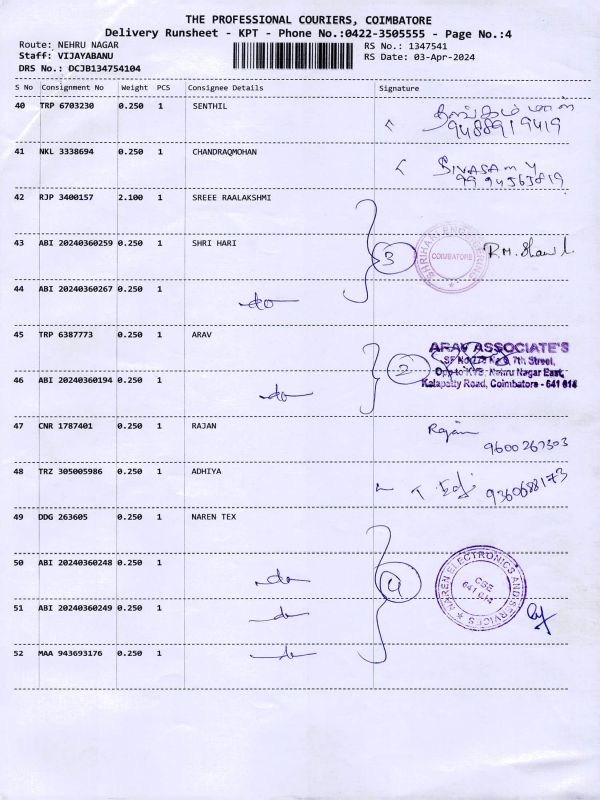 THE PROFESSIONAL COURIERS, COIMBATORE
Delivery Runsheet - KPT - Phone No.:0422-3505555 - Page No.:4
Route: NEHRU NAGAR
RS No.: 1347541
Staff: VIJAYABANU
RS Date: 03-Apr-2024
DRS No.: DCJB134754104
S No Consignment No Weight PCS Consignee Details Signature
40 TRP 6703230 0.250 1 SENTHIL
9488919419
41 NKL 3338694 0.250 1 CHANDRAQMOHAN SIVASAMY
9994563819
42 RJP 3400157 2.100 1 SREEE RAALAKSHMI
43 ABI 20240360259 0.250 1 SHRI HARI 3 SHRIHARI ENGINEERING COIMBATORE
44 ABI 20240360267 0.250 1 do
45 TRP 6387773 0.250 1 ARAV
ARAV ASSOCIATE'S
7th Street,
Opp to KTS, Nehru Nagar East,
Kalapatty Road, Coimbatore - 641 014
2
46 ABI 20240360194 0.250 1 do
47 CNR 1787401 0.250 1 RAJAN Rajan
9600267303
48 TRZ 305005986 0.250 1 ADHIYA 9360688173
49 DDG 263605 0.250 1 NAREN TEX
50 ABI 20240360248 0.250 1 do 4 NAREN ELECTRONICS AND SERVICES
CBE
641 014
51 ABI 20240360249 0.250 1 do
52 MAA 943693176 0.250 1 do